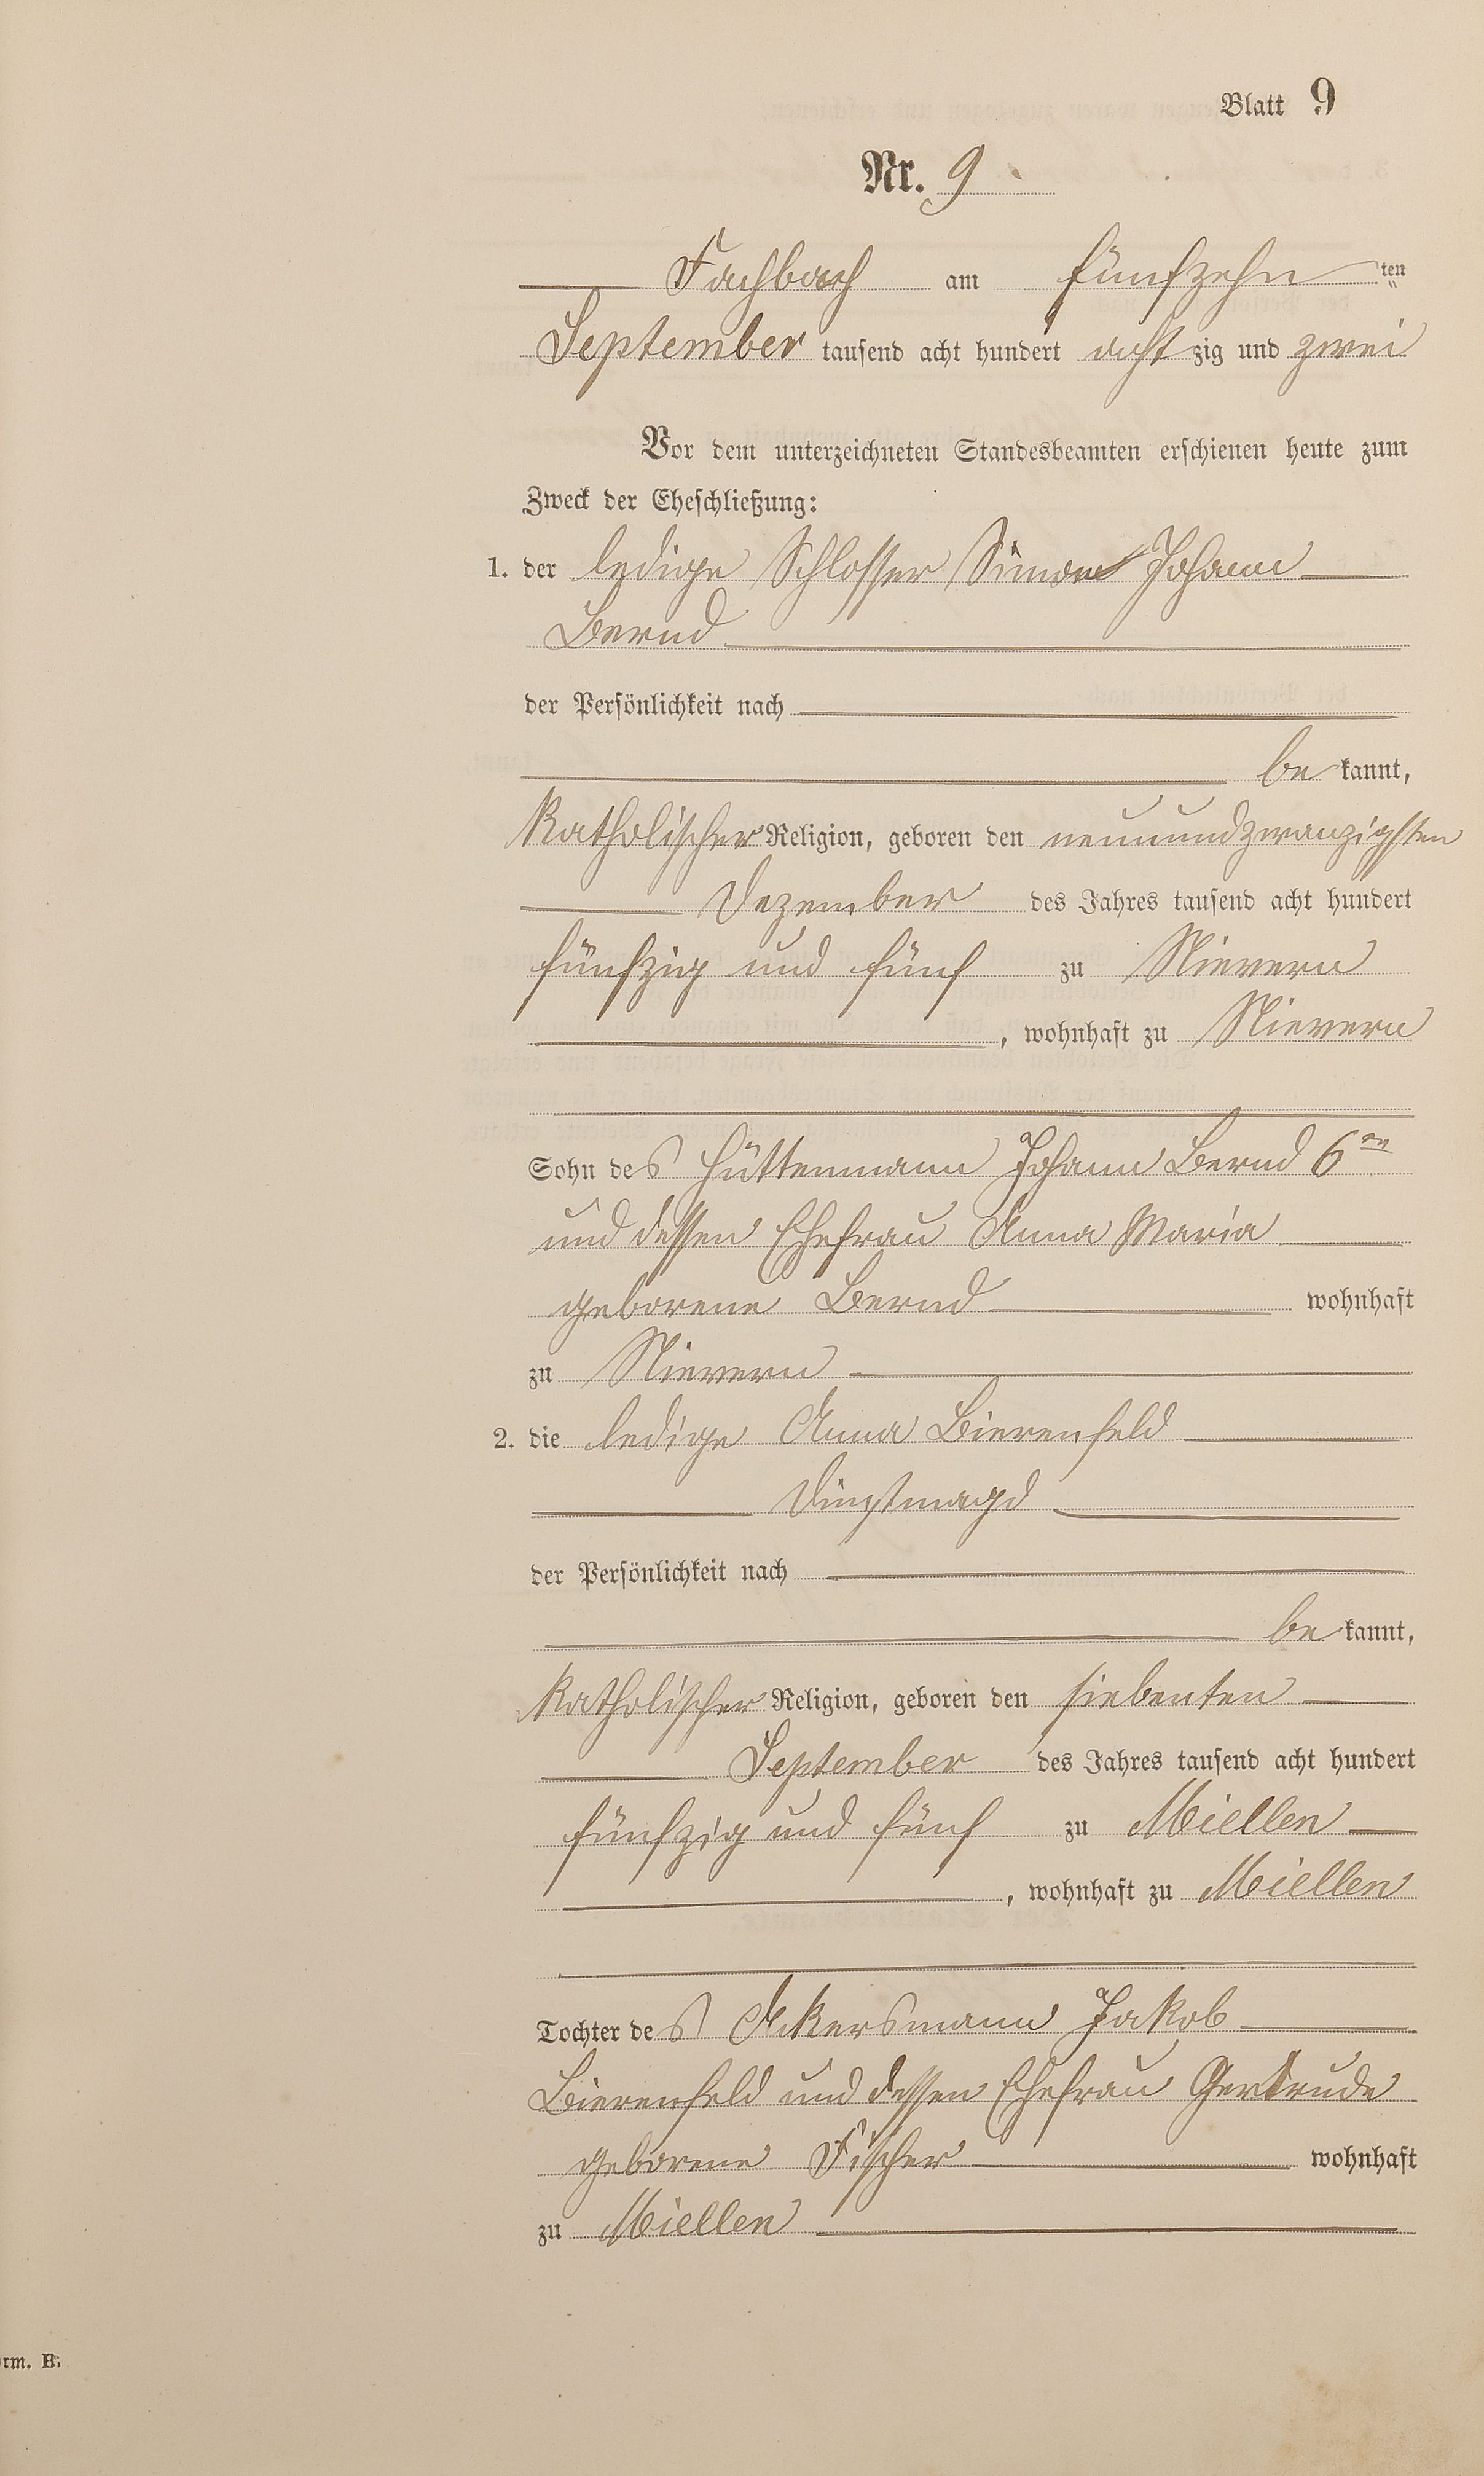 Blatt 9
Nr. 9
Fachbach am fünfzehn ten
September tausend acht hundert acht zig und zwei
Vor dem unterzeichneten Standesbeamten erschienen heute zum
Zweck der Eheschließung:
1. der ledige Schlosser Simon Johann
Bernd
der Persönlichkeit nach
be kannt,
katholischer Religion, geboren den neunundzwanzigsten
Dezember des Jahres tausend acht hundert
fünfzig und fünf zu Nievern
, wohnhaft zu Nievern
Sohn des Hüttenmann Johann Bernd 6
und dessen Ehefrau Anna Maria
geborene Bernd wohnhaft
zu Nievern
2. die ledige Anna Bierenfeld
Dinstmagd
der Persönlichkeit nach
be kannt,
katholischer Religion, geboren den siebenten
September des Jahres tausend acht hundert
fünfzig und fünf zu Miellen
, wohnhaft zu Miellen
Tochter des Ackersmann Jakob
Bierenfeld und dessen Ehefrau Gertrude
geborene Fischer wohnhaft
zu Miellen
orm. B.